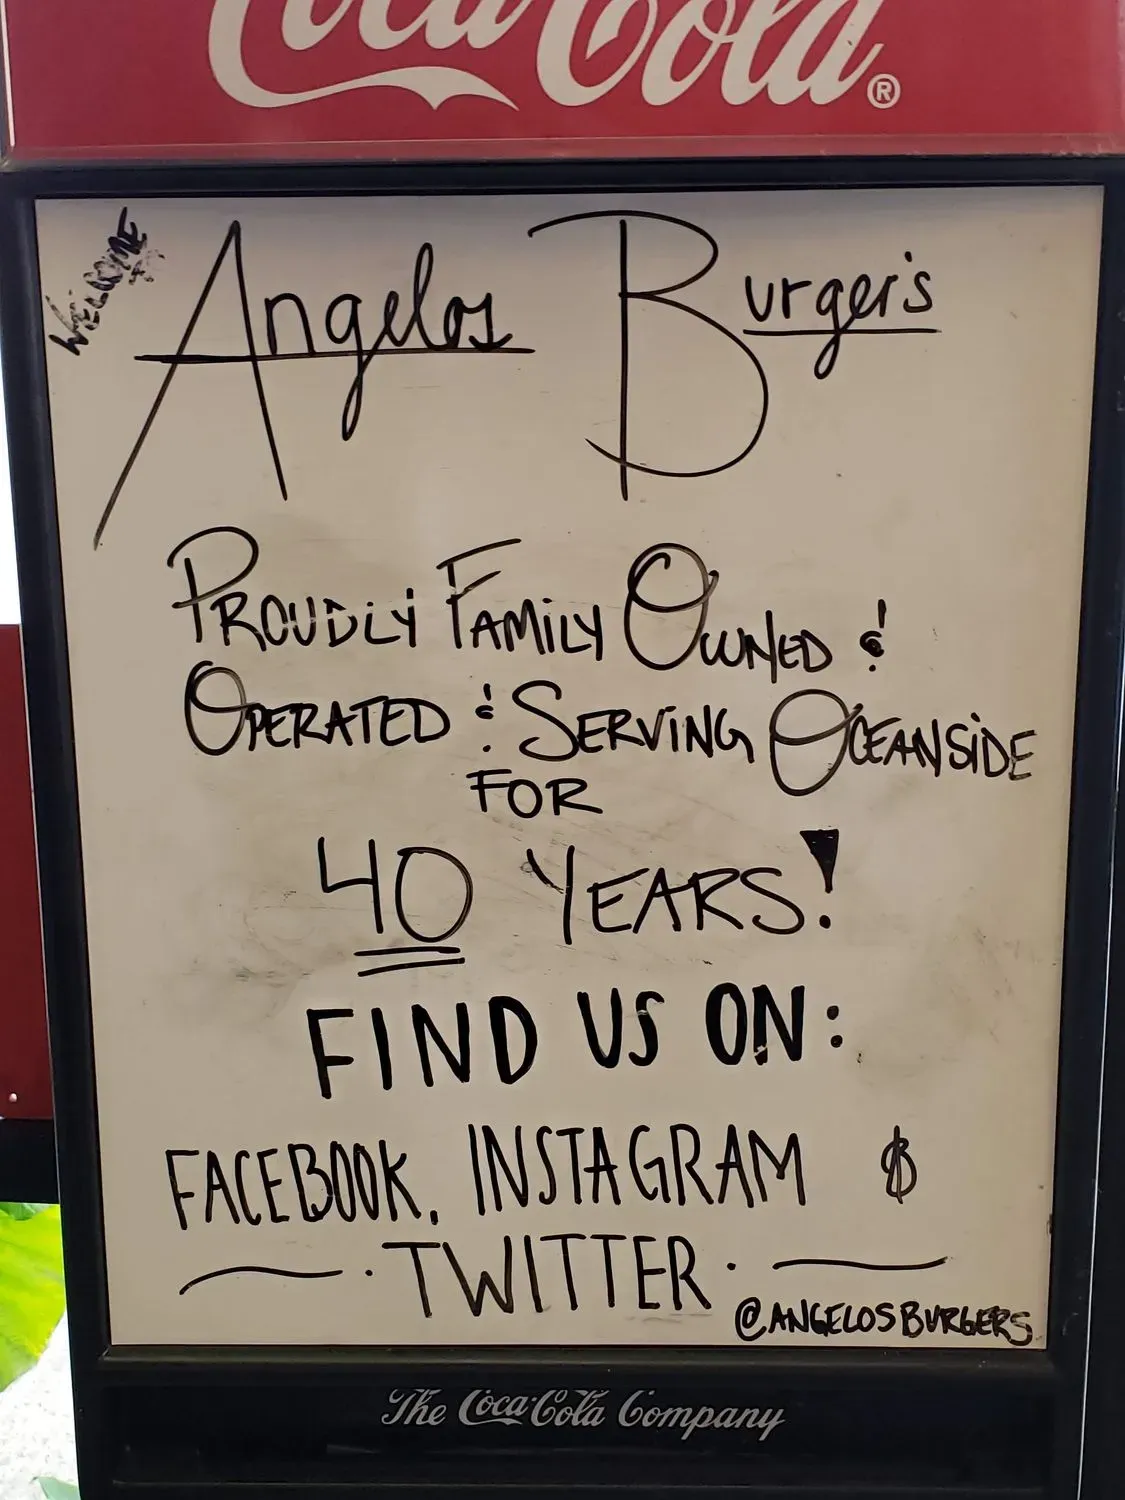 Coca-Cola®
WELCOME
TO
Angelos Burger's
PROUDLY FAMILY OWNED &
OPERATED & SERVING OCEANSIDE
FOR
40 YEARS!
FIND US ON:
FACEBOOK, INSTAGRAM &
TWITTER
@ANGELOSBURGERS
The Coca-Cola Company